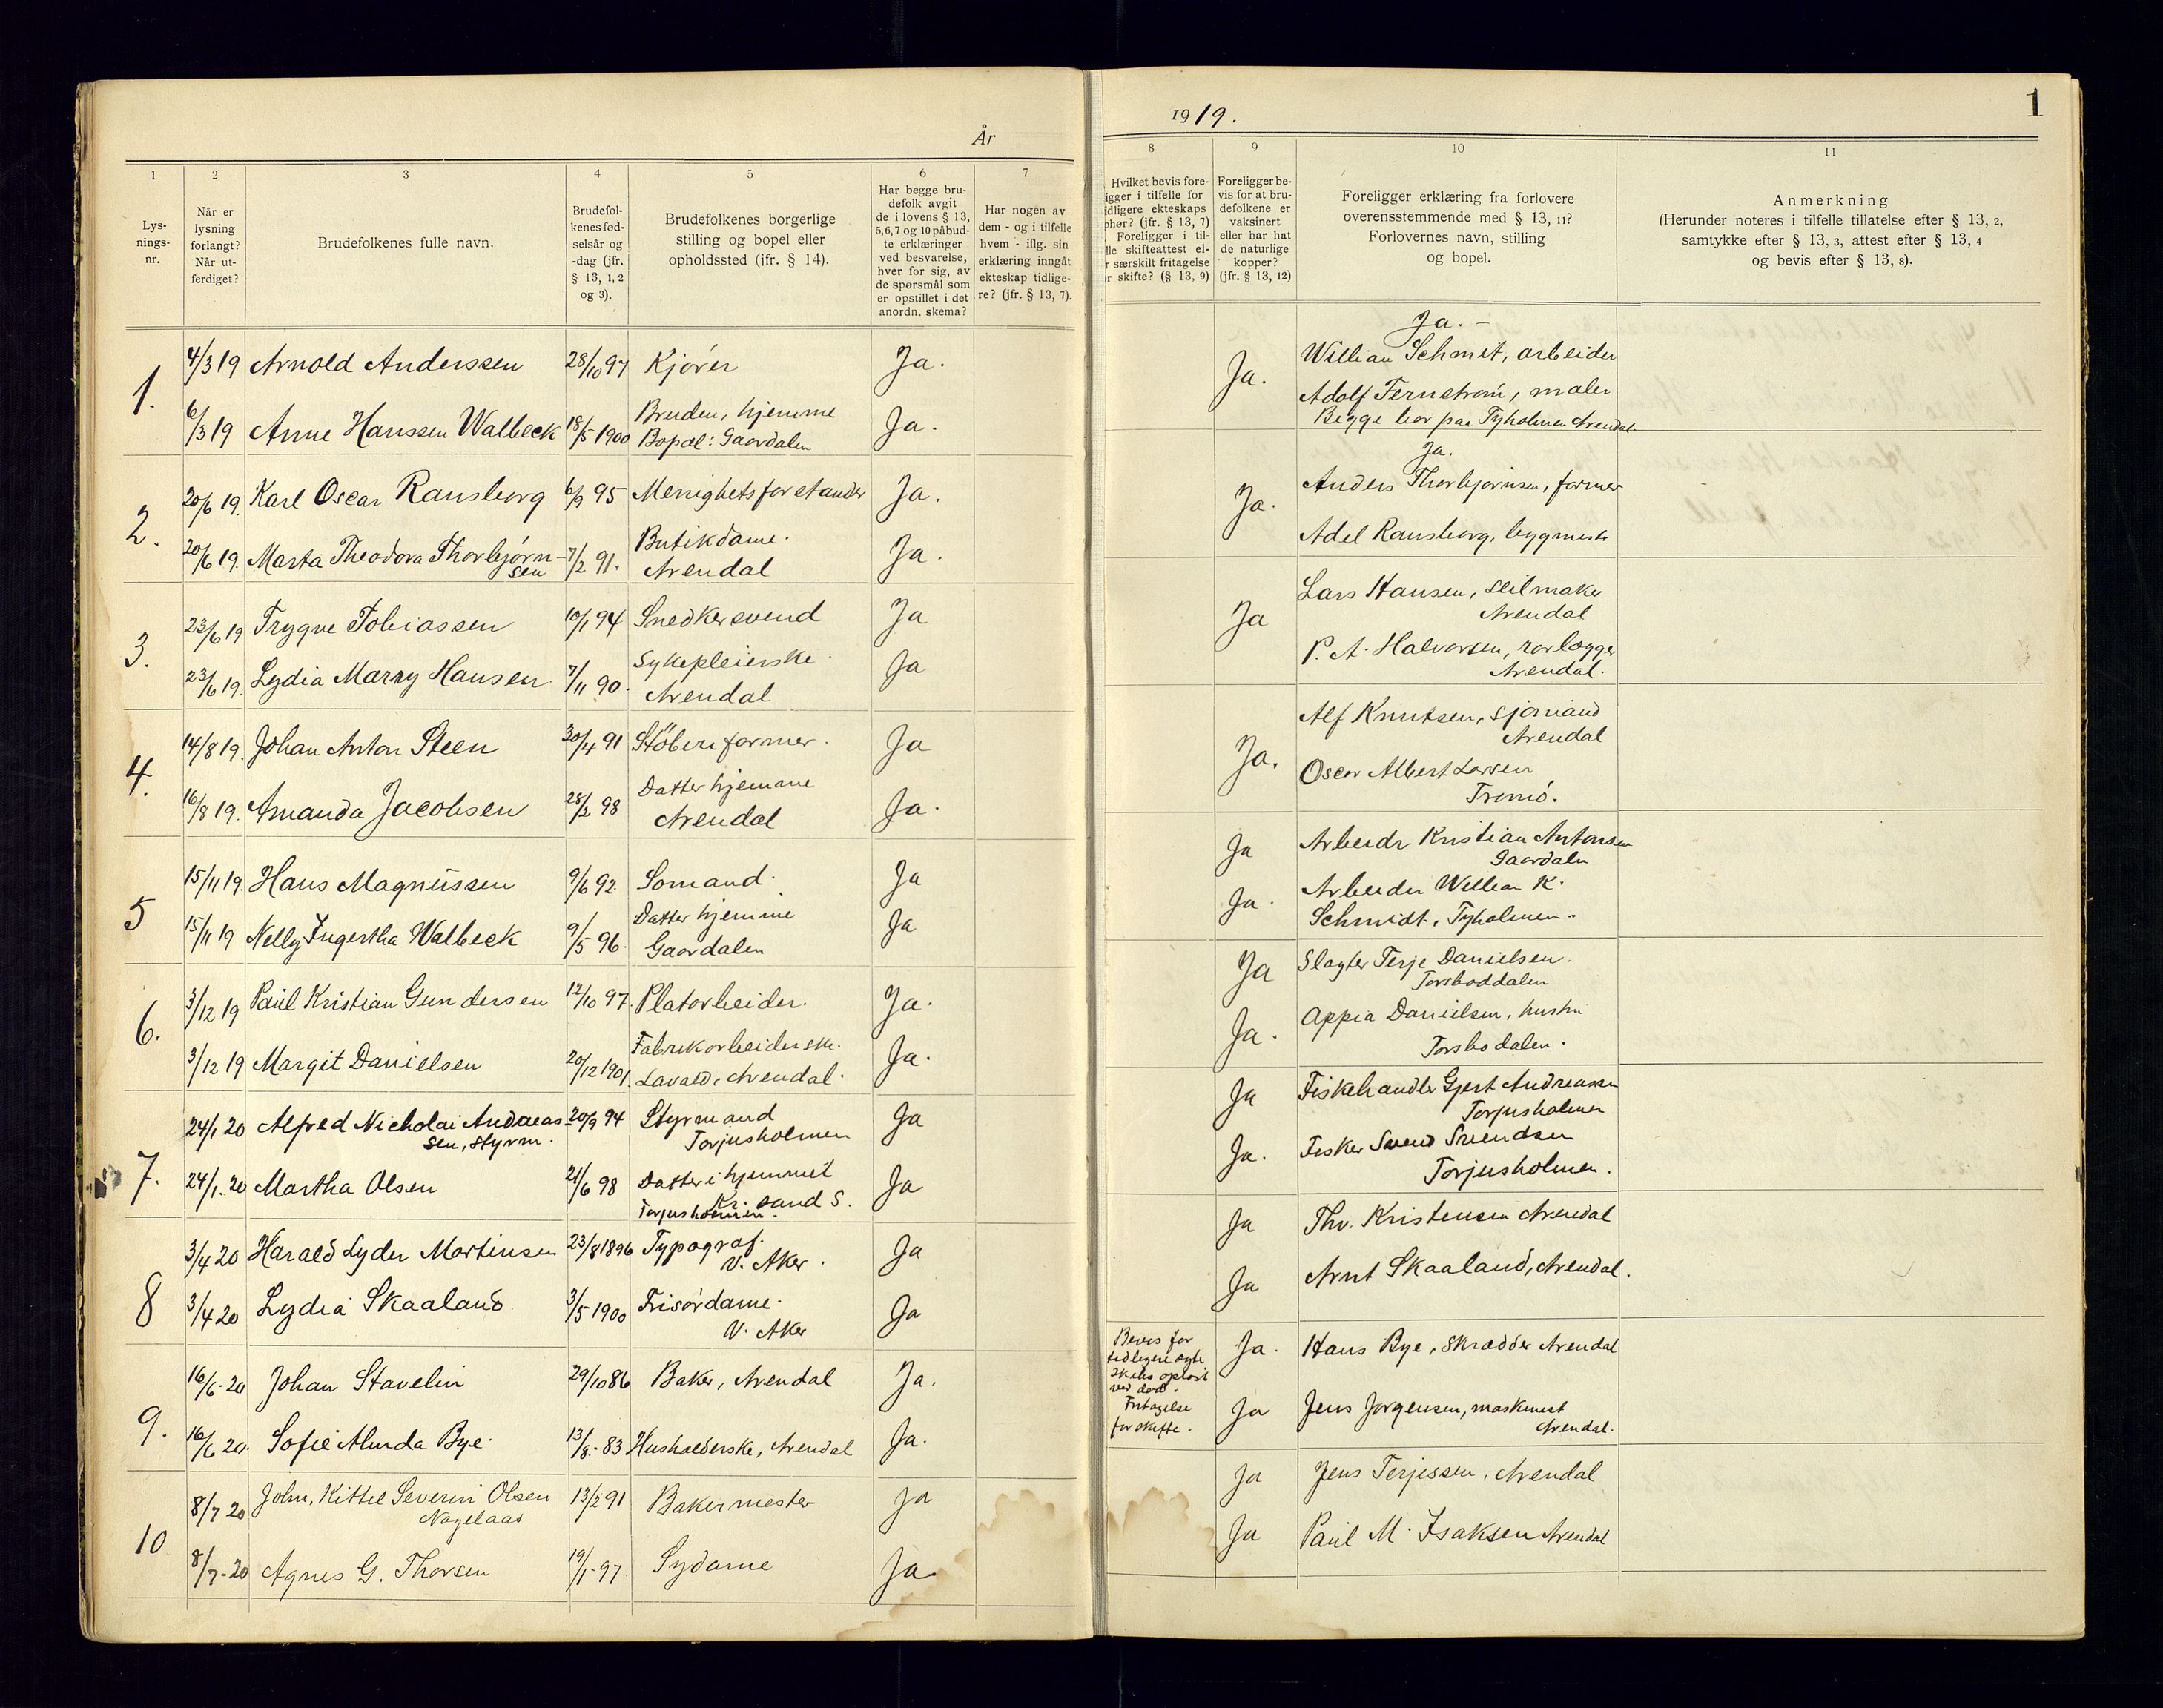 År
1919.
1
1
2
3
4
5
6
7
8
9
10
11
Lys-
nings-
nr.
Når er
lysning
forlangt?
Når ut-
ferdiget?
Brudefolkenes fulle navn.
Brudefol-
kenes fød-
selsår og
-dag (jfr.
§ 13, 1, 2
og 3).
Brudefolkenes borgerlige
stilling og bopel eller
opholdssted (jfr. § 14).
Har begge bru-
defolk avgit
de i lovens § 13,
5,6,7 og 10 påbud-
te erklæringer
ved besvarelse,
hver for sig, av
de spørsmål som
er opstillet i det
anordn. skema?
Har nogen av
dem - og i tilfelle
hvem - iflg. sin
erklæring inngåt
ekteskap tidlige-
re? (jfr. § 13, 7).
Hvilket bevis fore-
igger i tilfelle for
idligere ekteskaps
phør? (jfr. § 13, 7)
Foreligger i til-
lle skifteattest el-
r særskilt fritagelse
or skifte? (§ 13, 9)
Foreligger be-
vis for at bru-
defolkene er
vaksinert
eller har hat
de naturlige
kopper?
(jfr. § 13, 12)
Foreligger erklæring fra forlovere
overensstemmende med § 13, 11?
Forlovernes navn, stilling
og bopel.
Anmerkning
(Herunder noteres i tilfelle tillatelse efter § 13, 2,
samtykke efter § 13, 3, attest efter § 13, 4
og bevis efter § 13, 8).
1.
4/3 19 Arnold Anderssen 28/10 97 Kjörer Ja.
6/3 19 Anne Hanssen Walbeck 18/5 1900 Bruden, hjemme
Bopæl: Gaardalen Ja.
Ja.
Ja. -
William Schmit, arbeider
Adolf Fernström, maler
Begge bor paa Tyholmen Arendal
2.
20/6 19. Karl Oscar Ransborg 6/9 95 Menighetsforstander Ja.
20/6 19. Marta Theodora Thorbjörn-
sen 7/2 91. Butikdame.
Arendal Ja.
Ja.
Ja.
Anders Thorbjörnsen, former
Adel Ransborg, bygmest
3.
23/6 19 Trygve Tobiassen 10/1 94 Snedkersvend Ja
23/6 19. Lydia Marry Hansen 7/11 90. Sykepleierske.
Arendal Ja
Ja
Lars Hansen, seilmaker
Arendal
P. A. Halvorsen, rorlægger
Arendal.
4.
14/8 19. Johan Anton Steen 30/4 91 Stöberiformer. Ja
16/8 19. Amanda Jacobsen 28/2 98 Datter hjemme
Arendal Ja.
Ja.
Alf Knutsen, sjömand
Arendal
Oscar Albert Larsen
Tromö.
5
15/11 19. Hans Magnussen 9/6 92 Somand. Ja
15/11 19 Nelly Ingertha Walbeck 9/5 96. Datter hjemme
Gaardalen Ja
Ja
Ja.
Arbeidr Kristian Antonsen
Gaardaln
Arbeider William K.
Schmidt, Tyholmen.
6.
3/12 19 Paul Kristian Gundersen 12/10 97. Platarbeider. Ja.
3/12 19 Margit Danielsen 20/12 1901. Fabrikarbeidersk.
Arendal. Ja.
Ja
Ja.
Slagter Terje Danielsen.
Torsboddalen
Appia Danielsen, hustru
Torsbodalen.
7.
24/1 20 Alfred Nicholai Andreas-
sen, styrm. 20/9 94 Styrmand
Torjusholmen Ja
24/1.20 Martha Olsen 21/6 98 Datter i hjemmet
Kr. sand S.
Torjusholmen. Ja
Ja
Ja.
Fiskehandler Gjert Andreassen
Torjusholmen
Fisker Svend Svendsen
Torjusholmen.
8
3/4 20 Harald Lyder Martinsen 23/8 1896 Typograf.
V. Aker. Ja
3/4 20 Lydia Skaaland 3/5 1900 Frisördame.
V. Aker Ja
Ja
Ja
Thv. Kristensen Arendal
Arnt Skaaland, Arendal.
9.
16/6-20 Johan Stavelin 29/10 86 Baker, Arendal Ja.
16/6 20. Sofie Alinda Bye. 13/8-83 Husholderske, Arendal Ja.
Bevis for
tidligere ægte
skabs oplöst
ved död.
Fritagelse
for skifte.
Ja.
Ja
Hans Bye, Skrædder Arendal
Jens Jorgensen, maskmest
Arendal.
10
8/7 20 John, Kittil Severin Olsen
Nagelaas 13/2 91 Bakermester Ja
8/7-20 Agnes G. Thorsen 19/1-97 Sydame Ja
Ja
Ja
Jens Terjessen, Arendal
Paul M. Isaksen Arendal